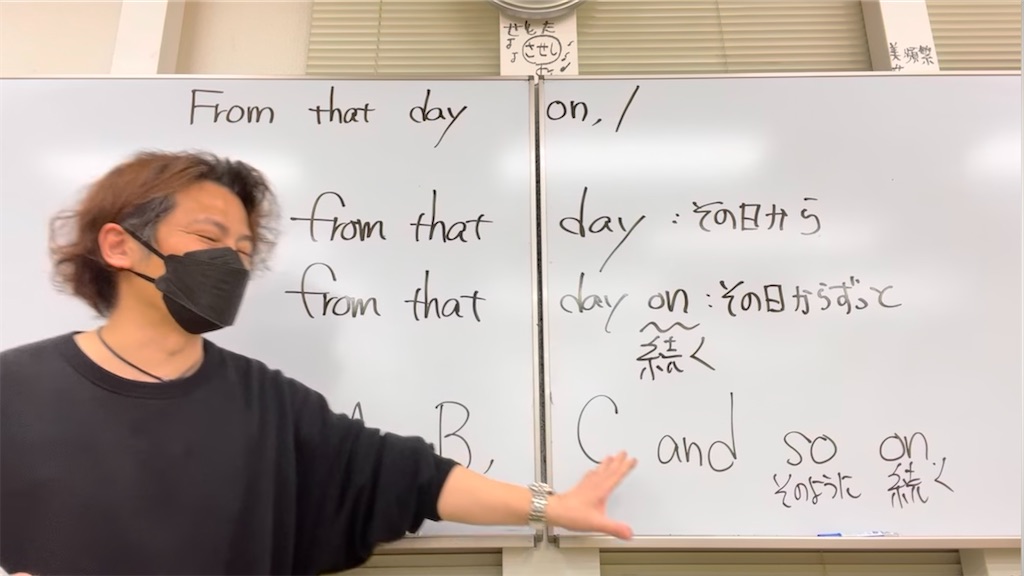 させし
From that day on, /
from that day : その日から
from that day on : その日からずっと
続く
A, B, C and so on
そのように 続く